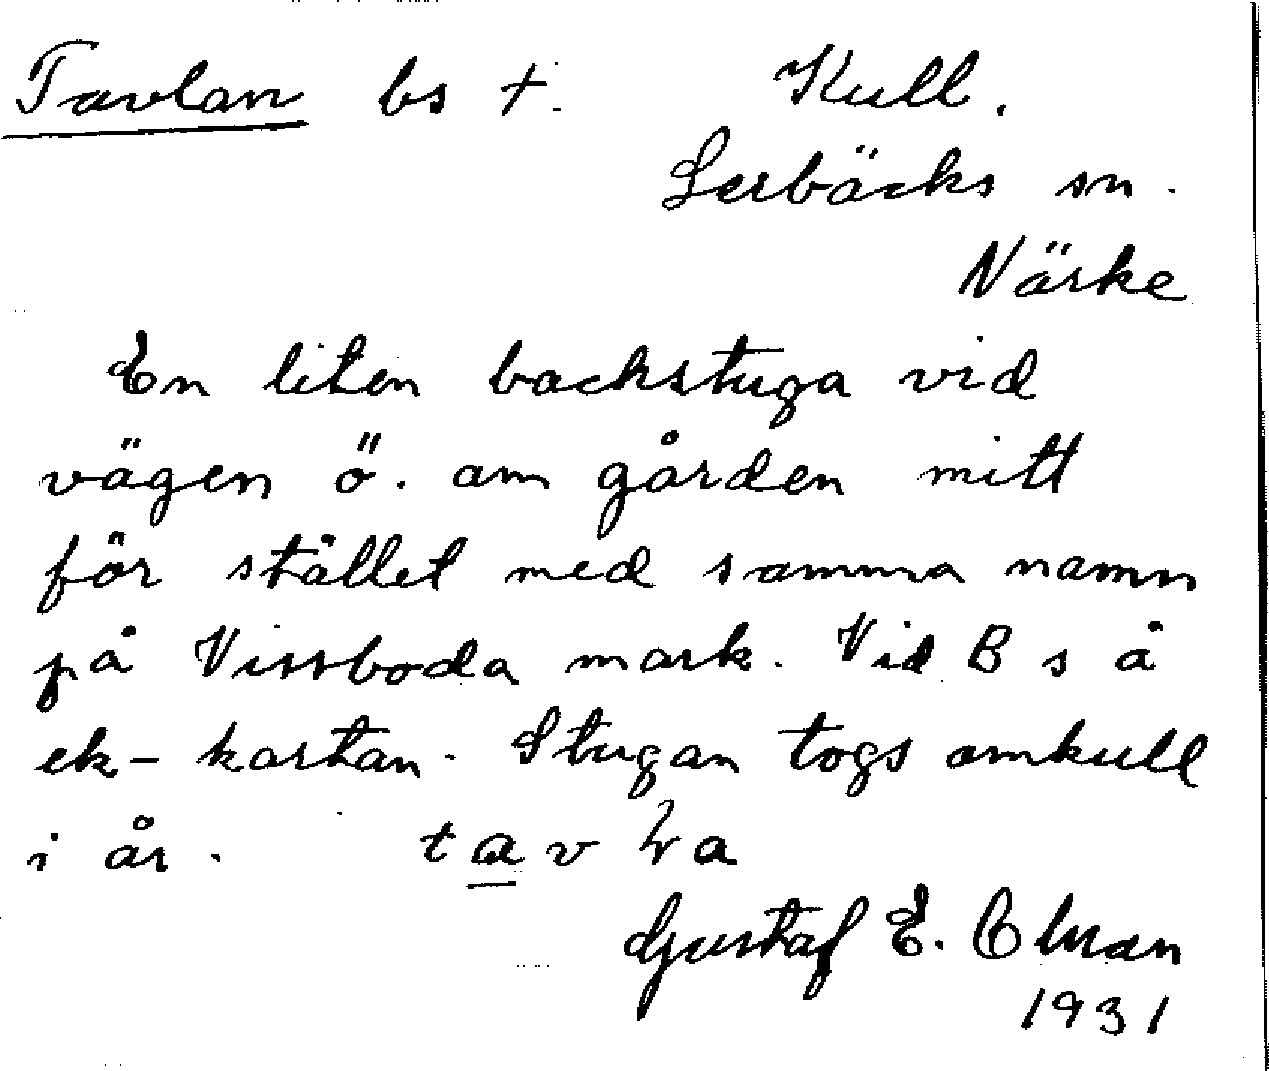 Tavlan bs †. Kull.
Lerbäcks sn.
Närke
En liten backstuga vid
vägen ö. om gården mitt
för stället med samma namn
på Vissboda mark. Vid B s å
ek-kartan. Stugan togs omkull
i år. tav a
Gustaf E. Olman
1931